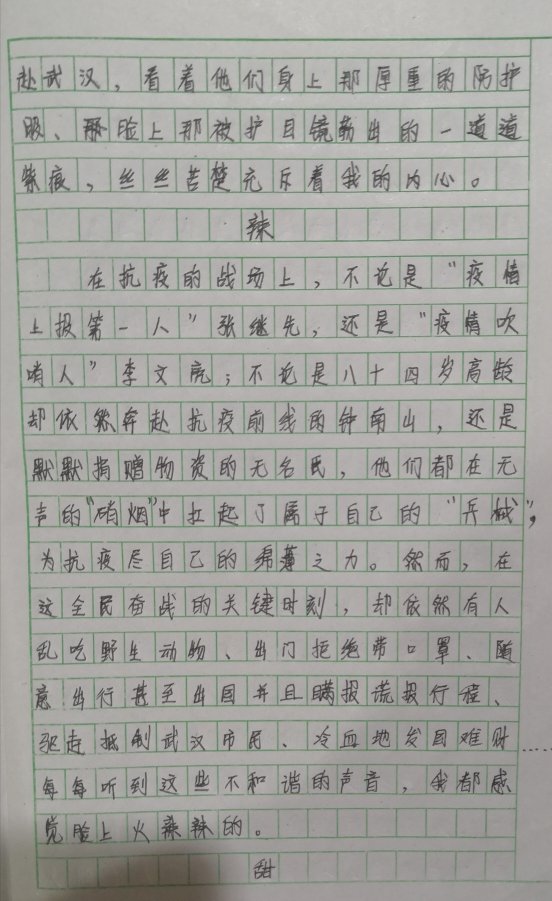 赴武汉，看着他们身上那厚重的防护
服、脸上那被护目镜勒出的一道道
紫痕，丝丝苦楚充斥着我的内心。
辣
在抗疫的战场上，不论是“疫情
上报第一人”张继先，还是“疫情吹
哨人”李文亮；不论是八十四岁高龄
却依然奔赴抗疫前线的钟南山，还是
默默捐赠物资的无名氏，他们都在无
声的“硝烟”中扛起了属于自己的“兵械”，
为抗疫尽自己的绵薄之力。然而，在
这全民奋战的关键时刻，却依然有人
乱吃野生动物、出门拒绝带口罩、随
意出行甚至出国并且瞒报谎报行程、
驱赶抵制武汉市民、冷血地发国难财
每每听到这些不和谐的声音，我都感
觉脸上火辣辣的。
甜